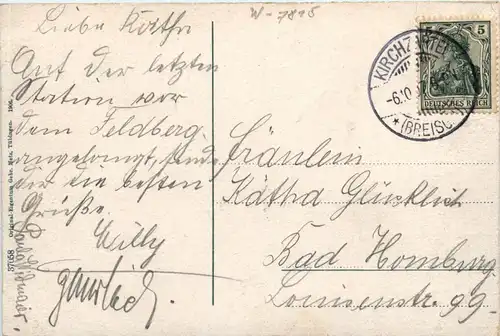 W-7815
Liebe Käthe
Auf der letzten
Station vor
dem Feldberg
angelangt, sende
dir die besten
Grüße.
Willy
Fräulein
Kätha Glücklich
Bad Homburg
Louisenstr. 99.
KIRCHZARTEN
-6.10.
*(BREISG
5
DEUTSCHES REICH
37058 Original-Eigentum Gebr. Metz, Tübingen. 1906.